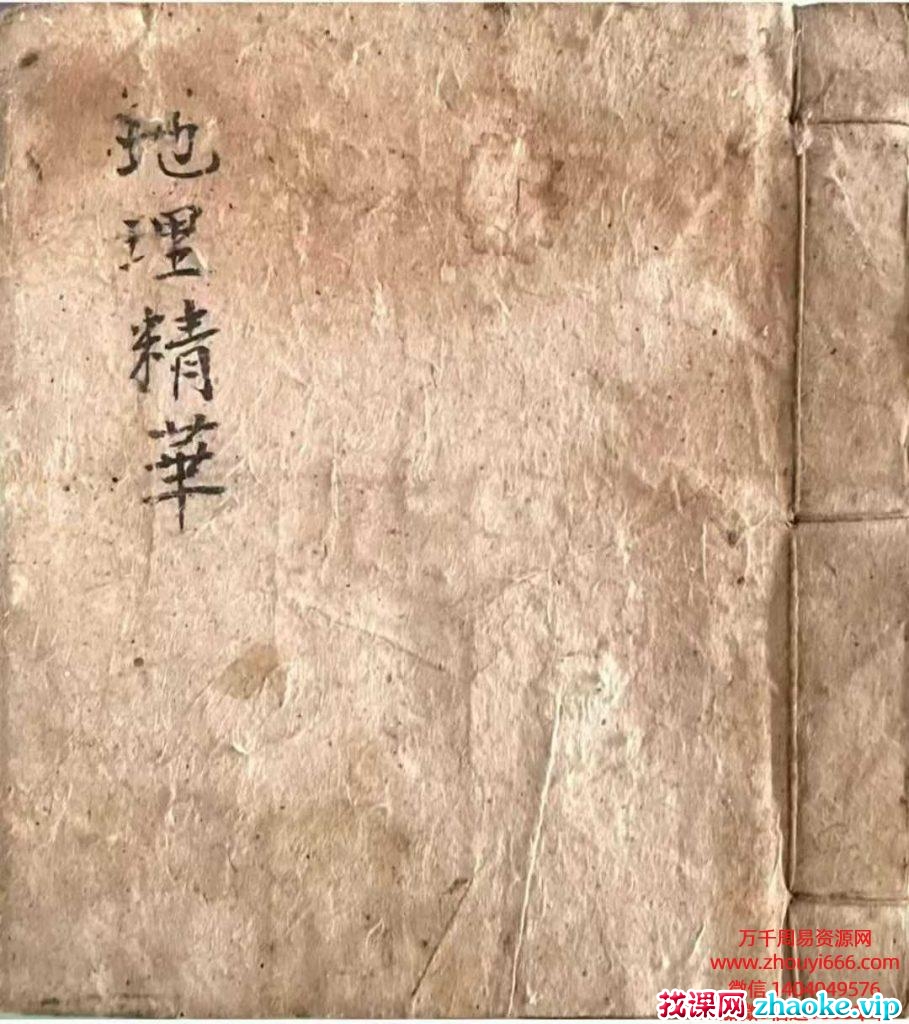 地理精華
万千周易资源网
www.zhouyi666.com
微信 1404049576
找课网zhaoke.vip